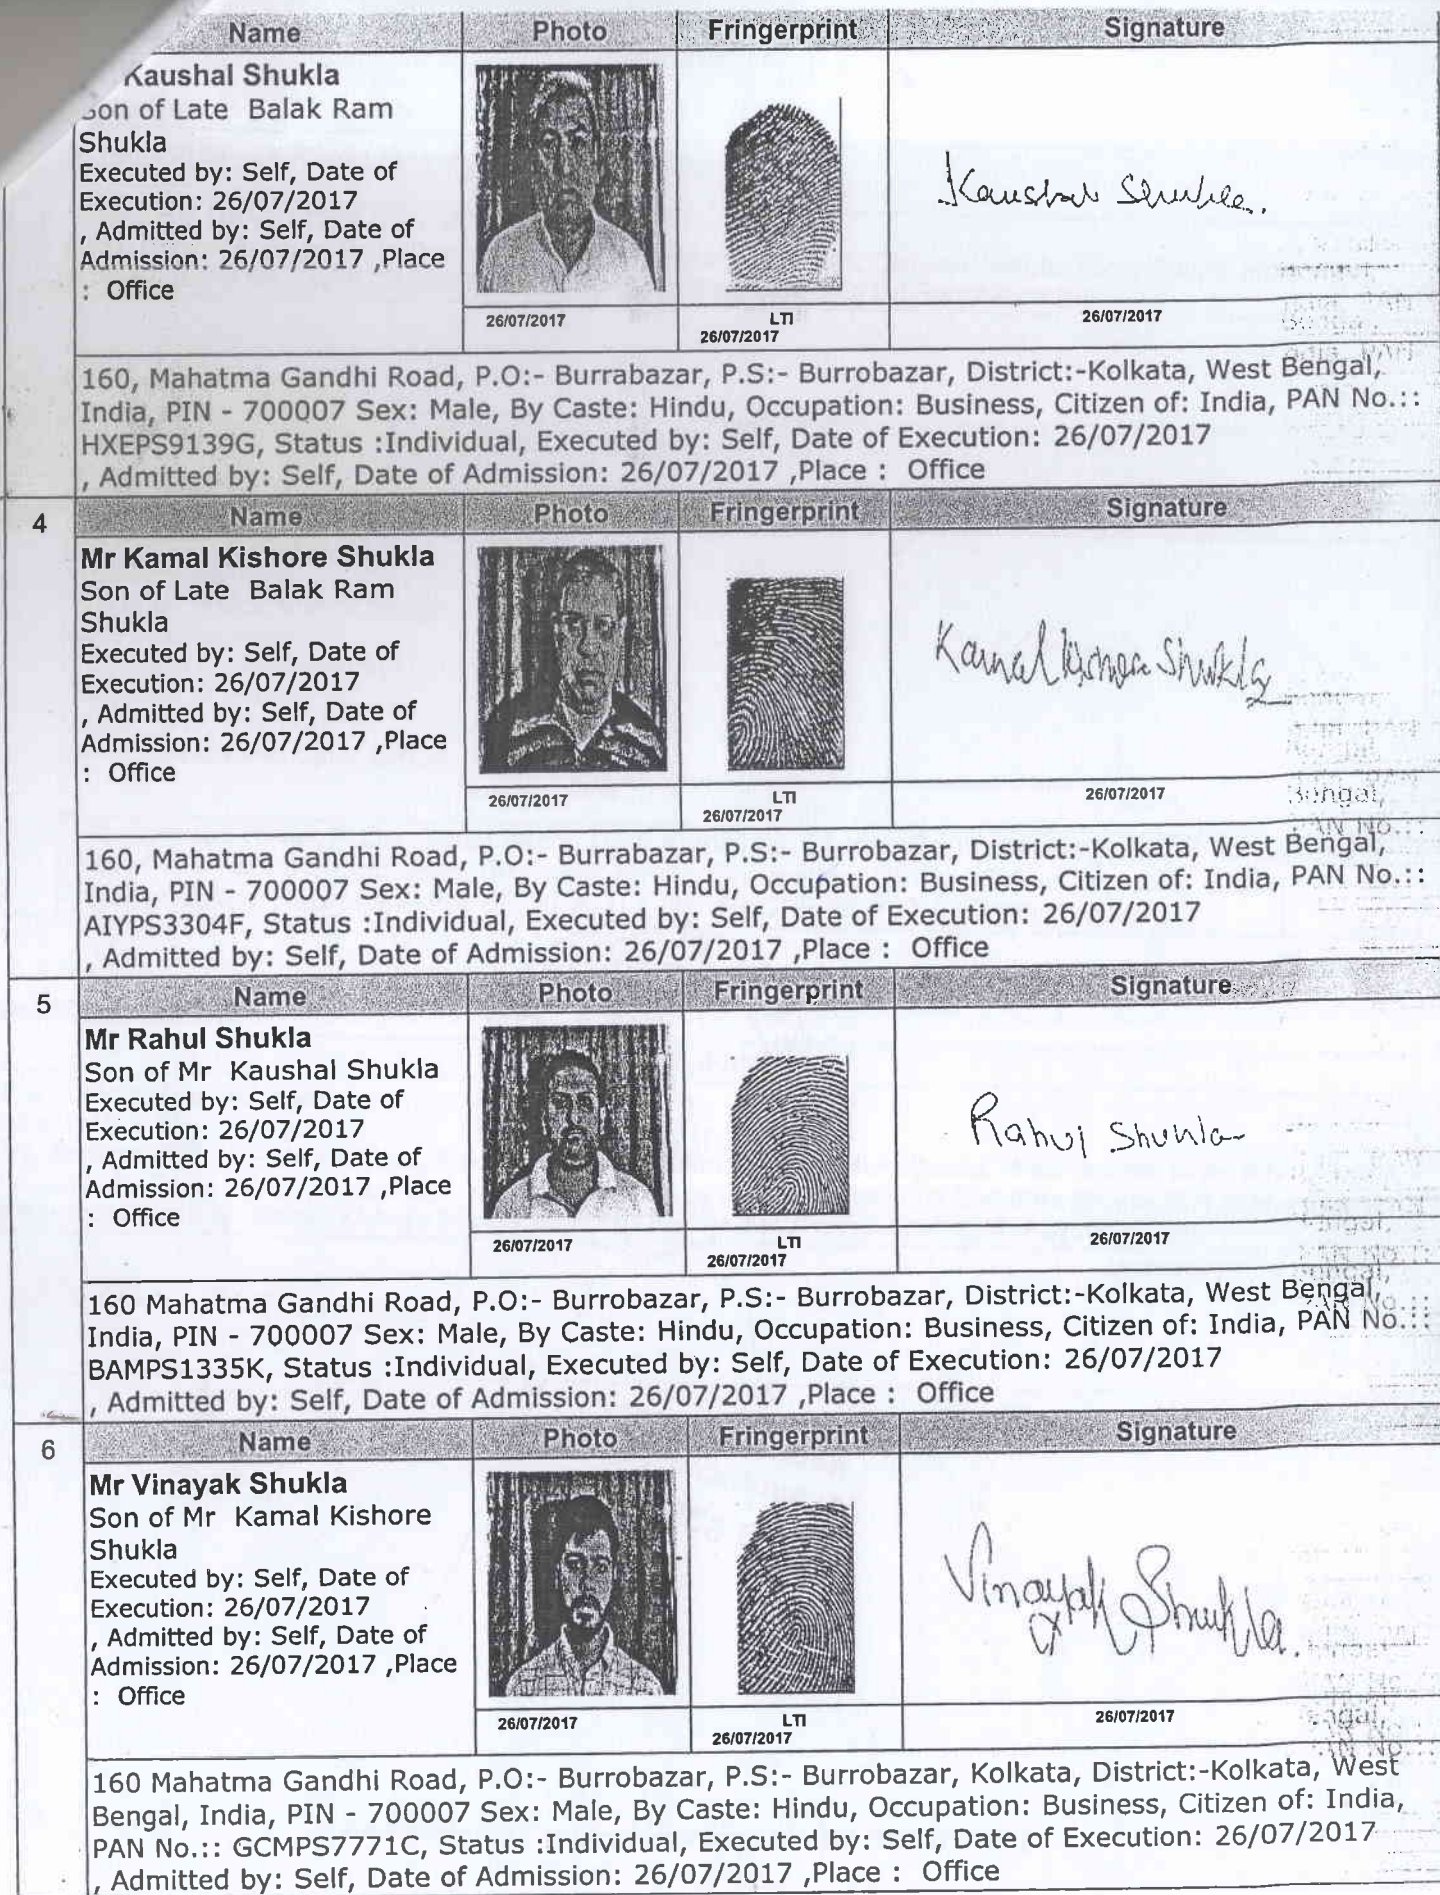 Name Photo Fringerprint Signature
Kaushal Shukla
Son of Late Balak Ram
Shukla
Executed by: Self, Date of
Execution: 26/07/2017
, Admitted by: Self, Date of
Admission: 26/07/2017 ,Place
: Office
Kaushal Shukla.
26/07/2017 LTI 26/07/2017
26/07/2017
160, Mahatma Gandhi Road, P.O:- Burrabazar, P.S:- Burrobazar, District:-Kolkata, West Bengal,
India, PIN - 700007 Sex: Male, By Caste: Hindu, Occupation: Business, Citizen of: India, PAN No.::
HXEPS9139G, Status :Individual, Executed by: Self, Date of Execution: 26/07/2017
, Admitted by: Self, Date of Admission: 26/07/2017 ,Place : Office
4 Name Photo Fringerprint Signature
Mr Kamal Kishore Shukla
Son of Late Balak Ram
Shukla
Executed by: Self, Date of
Execution: 26/07/2017
, Admitted by: Self, Date of
Admission: 26/07/2017 ,Place
: Office
Kamal Kishore Shukla
26/07/2017 LTI 26/07/2017
26/07/2017
160, Mahatma Gandhi Road, P.O:- Burrabazar, P.S:- Burrobazar, District:-Kolkata, West Bengal,
India, PIN - 700007 Sex: Male, By Caste: Hindu, Occupation: Business, Citizen of: India, PAN No.::
AIYPS3304F, Status :Individual, Executed by: Self, Date of Execution: 26/07/2017
, Admitted by: Self, Date of Admission: 26/07/2017 ,Place : Office
5 Name Photo Fringerprint Signature
Mr Rahul Shukla
Son of Mr Kaushal Shukla
Executed by: Self, Date of
Execution: 26/07/2017
, Admitted by: Self, Date of
Admission: 26/07/2017 ,Place
: Office
Rahul Shukla
26/07/2017 LTI 26/07/2017
26/07/2017
160 Mahatma Gandhi Road, P.O:- Burrobazar, P.S:- Burrobazar, District:-Kolkata, West Bengal,
India, PIN - 700007 Sex: Male, By Caste: Hindu, Occupation: Business, Citizen of: India, PAN No.::
BAMPS1335K, Status :Individual, Executed by: Self, Date of Execution: 26/07/2017
, Admitted by: Self, Date of Admission: 26/07/2017 ,Place : Office
6 Name Photo Fringerprint Signature
Mr Vinayak Shukla
Son of Mr Kamal Kishore
Shukla
Executed by: Self, Date of
Execution: 26/07/2017
, Admitted by: Self, Date of
Admission: 26/07/2017 ,Place
: Office
Vinayak Shukla.
26/07/2017 LTI 26/07/2017
26/07/2017
160 Mahatma Gandhi Road, P.O:- Burrobazar, P.S:- Burrobazar, Kolkata, District:-Kolkata, West
Bengal, India, PIN - 700007 Sex: Male, By Caste: Hindu, Occupation: Business, Citizen of: India,
PAN No.:: GCMPS7771C, Status :Individual, Executed by: Self, Date of Execution: 26/07/2017
, Admitted by: Self, Date of Admission: 26/07/2017 ,Place : Office